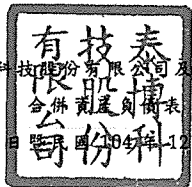 泰博科
技股份
有限公司
科技股份有限公司及
合併資產負債表
日暨民國104年12